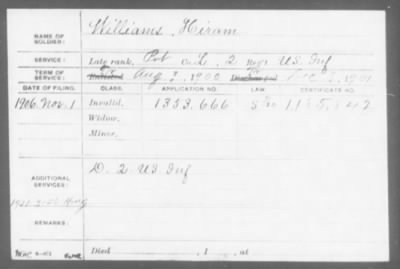 NAME OF SOLDIER: Williams, Hiram
SERVICE: Late rank, Pvt Co. L, 2 Reg't U.S. Inf
TERM OF SERVICE: Enlisted Aug 1900 Discharged 1901
DATE OF FILING. CLASS. APPLICATION NO. LAW. CERTIFICATE NO.
1906. Nov. 1 Invalid, 1353.666
Widow,
Minor,
ADDITIONAL SERVICES: D. 2 U.S. Inf
REMARKS:
Died , 1 , at